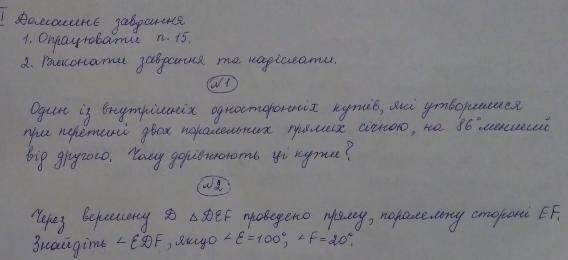 I Домашнє завдання
1. Опрацювати п. 15.
2. Виконати завдання та надіслати.
№1
Один із внутрішніх односторонніх кутів, які утворилися
при перетині двох паралельних прямих січною, на 86° менший
від другого. Чому дорівнюють ці кути?
№2
Через вершину D △DEF проведено пряму, паралельну стороні EF.
Знайдіть ∠EDF, якщо ∠E=100°, ∠F=20°.